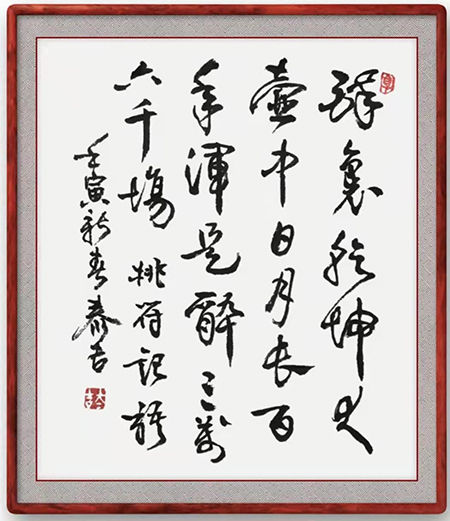 醉裏乾坤大
壺中日月長百
年渾是醉三萬
六千場 桃符記語
壬寅新春泰吉